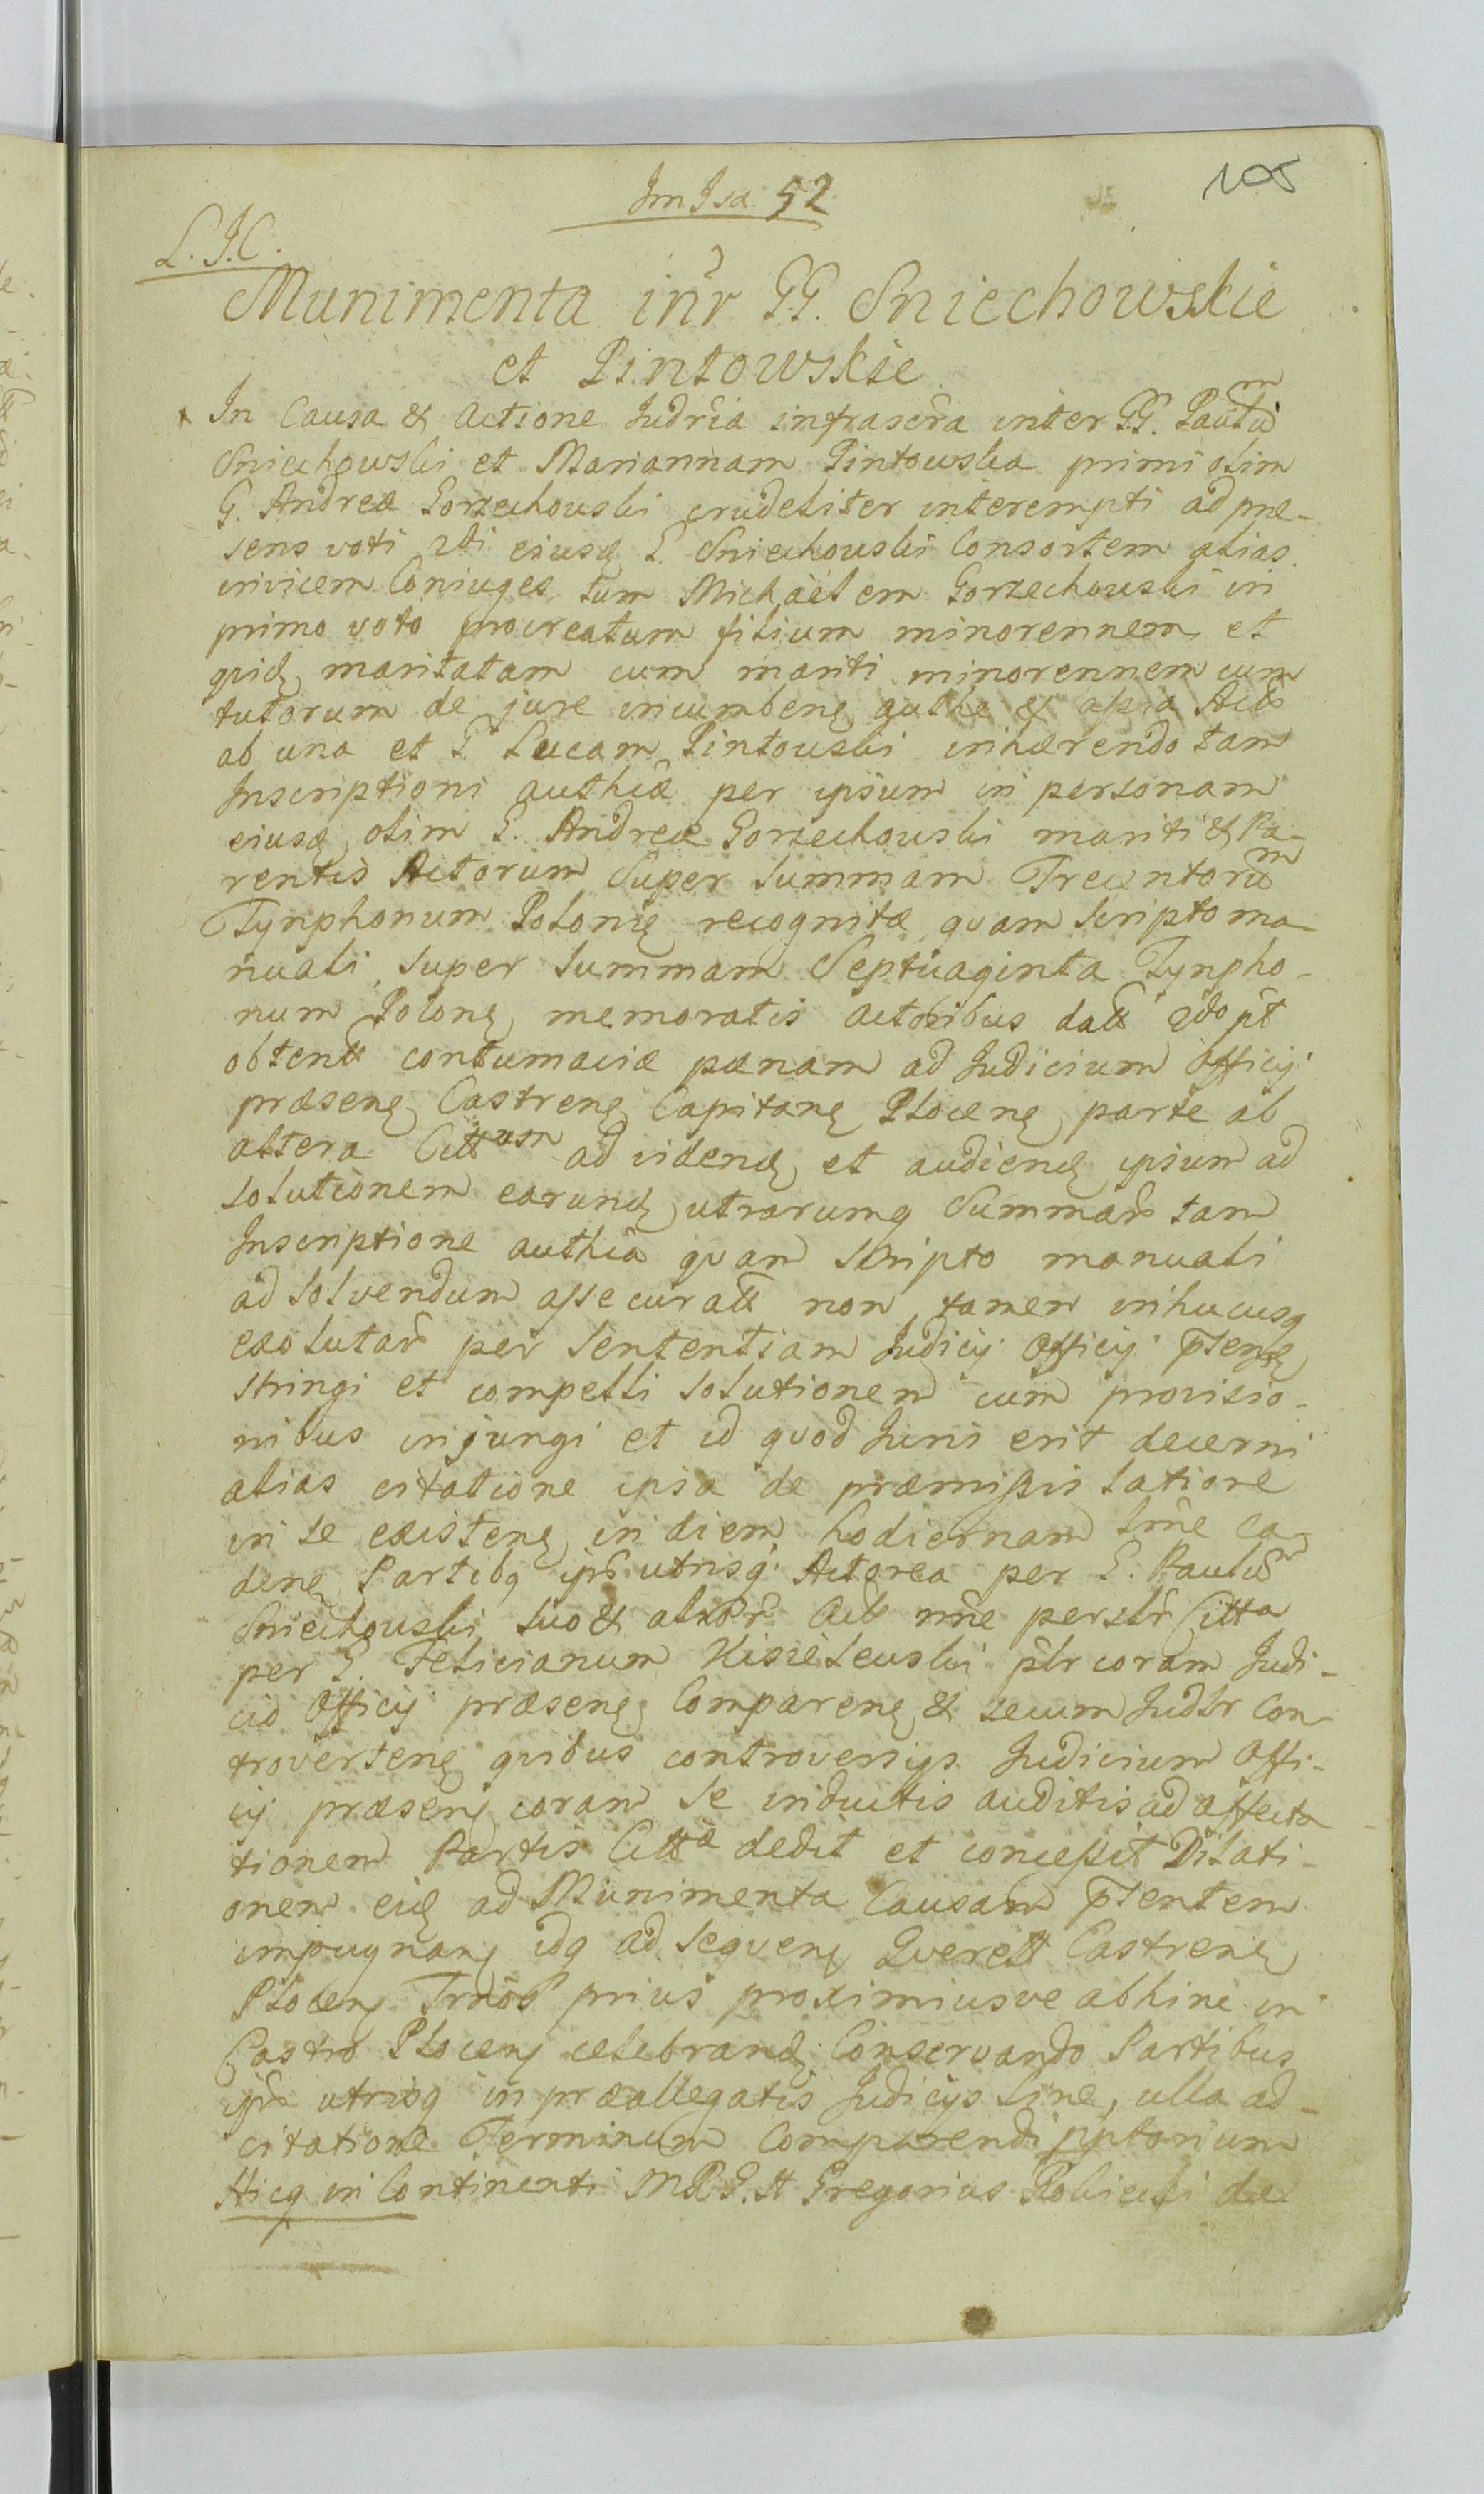 105
Im Isa 52
L. J. C.
Munimenta inr̃ GG. Sniechowskie
et Pintowskie
In Causa & Actione Judr̃ia infrascr̃a inter GG. Paulũm
Sniechowski et Mariannam Pintowska primi olim
G. Andreæ Gorzechowski crudeliter interempti ad præ-
sens voti 2di eiusq G. Sniechowski Consortem alias
invicem Coniuges, tum Michäelem Gorzechowski in
primo voto procreatum filium minorennem, et
quidę maritatam cum mariti minorennem cum
tutorum de jure incumbenę authã & assia Acts
ab una et G Lucam Pintowski inhærendo tam
Inscriptioni authcæ per ipsum in personam
eiusdę olim G. Andreæ Gorzechowski mariti & Pa-
rentis Actorum Super Summam Trecentorũm
Tynphonum Polonię recognitæ, quam Scripto ma-
nuali, Super Summam Septuaginta Tynpho-
num Polonę memoratis actoribus datt 2do pt
obtentt contumaciæ pænam ad Judicium Officij
præsenę Castrenę Capitanę Plocenę parte ab
altera Cittum ad videndę et audiendę ipsum ad
solutionem earundę utrarumq Summar̃ tam
Inscriptione authcã quam Scripto manuali
ad solvendum assecuratt non tamen inhucusq
exolutar̃ per Sententiam Judicij Officij p̃sensę
stringi et compelli solutionem cum provisio-
nibus injungi et id quod Juris erit decerni
alias citatione ipsa de præmissis latiore
in se existenę in diem hodiernam lm̃e ca-
denę Partibq ipś utrisq Actorea per G. Paulũm
Sniechowski suo & alior̃ Act nñe perslr̃ Citta
per G. Felicianum Kisielewski plr̃ coram Judi-
cio Officij præsenę Comparenę & secum Judlr Con-
trovertenę quibus controversijs Judicium Offi-
cij præsenę coram se inductis auditis ad affecta-
tionem Partis Cittæ dedit et concessit Dilati-
onem eidę ad Munimenta Causam p̃sentem
impugnanę idq ad sequenę Querell Castrenę
Plocenę Trños prius proximiusve abhinc in
Castro Plocenę celebrandę Conservando Partibus
ipś utrisq in præallegatis Judicijs sine, ulla ad-
citatione Terminum Comparendi pptorium
Hicq in Continenti MRG. H Gregorius Robiecki de